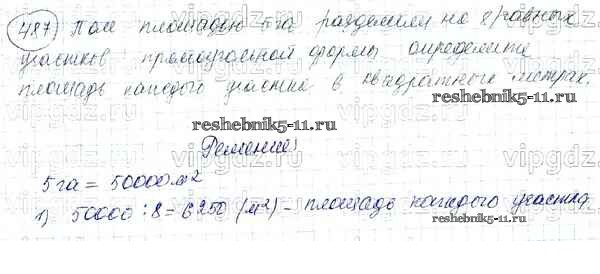 487) Поле площадью 5га разделили на 8 равных
участков прямоугольной формы определите
площадь каждого участка в квадратных метрах.
reshebnik5-11.ru
reshebnik5-11.ru
Решение:
5га = 50000м2
1) 50000 : 8 = 6250 (м2) - площадь каждого участка.
reshebnik5-11.ru